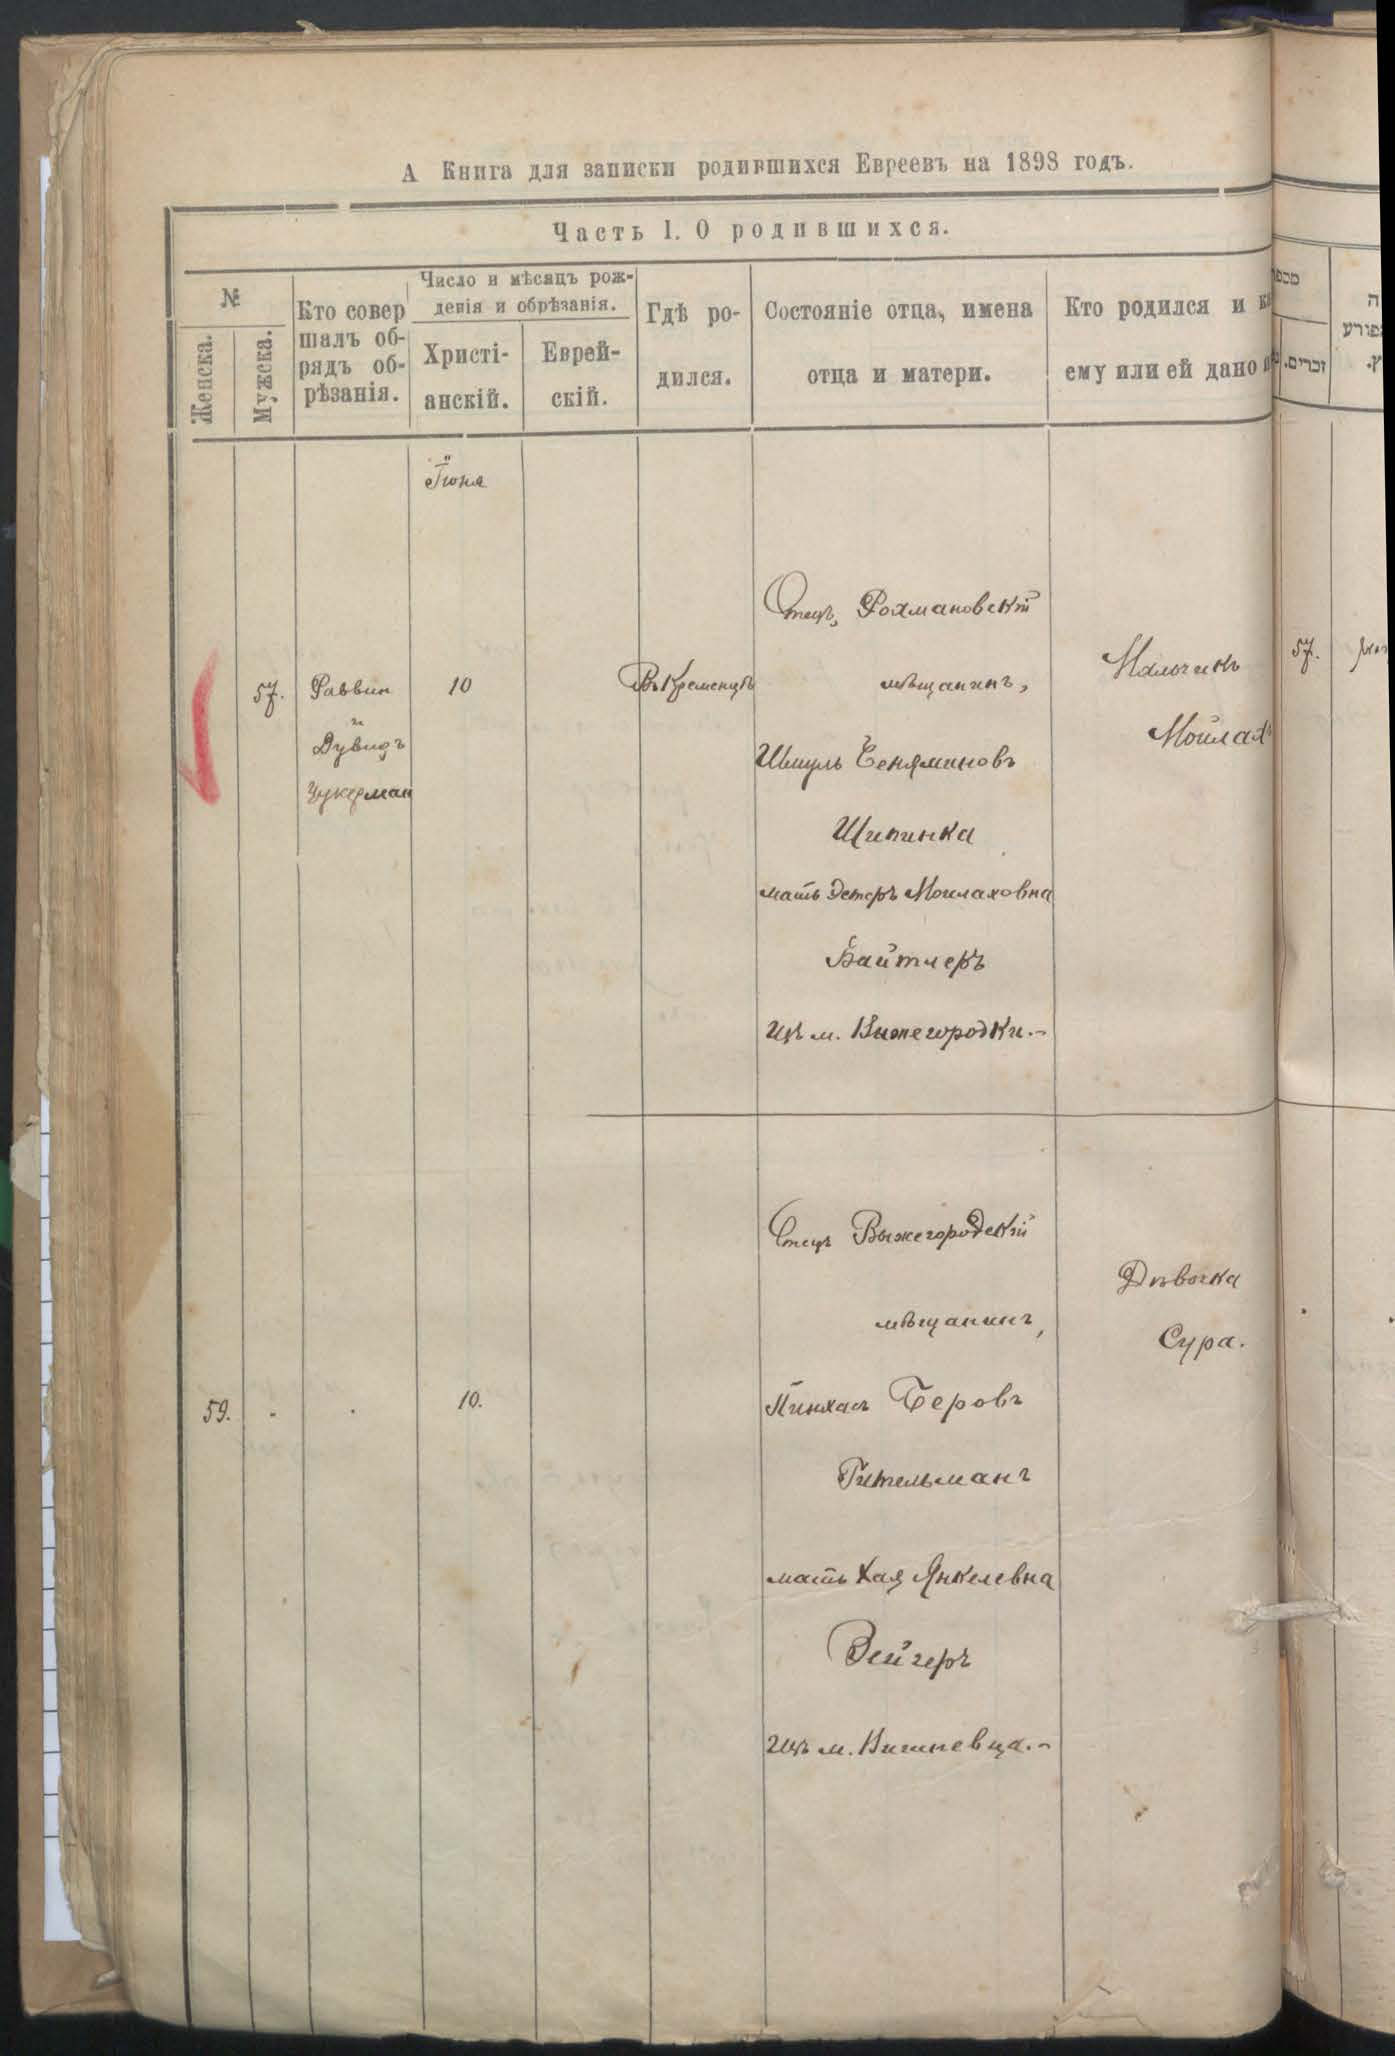 А Книга для записки родившихся Евреевъ на 1898 годъ.
Часть I. О родившихся.
№
Женска.
Мужска.
Кто совер
шалъ об-
рядъ об-
рѣзанія.
Число и мѣсяцъ рож-
денія и обрѣзанія.
Христі-
анскій.
Еврей-
скій.
Гдѣ ро-
дился.
Состояніе отца, имена
отца и матери.
Кто родился и
ему или ей дано
זכרים.
Іюня
57.
Раввин
и
Дувидъ
Цукерман
10
Въ Кременцѣ
Отецъ, Рохмановскій
мѣщанинъ,
Шмуль Беняминовъ
Шипинка
мать Эстеръ Мошлаховна
Байтлеръ
Изъ м. Вижегородки.-
Мальчикъ
Мойлахъ
57.
59.
10.
Отецъ Выжегородскій
мѣщанинъ,
Пинхасъ Беровъ
Гительманъ
мать Хая Янкелевна
Вейгеръ
Изъ м. Вишневца.-
Дѣвочка
Сура.